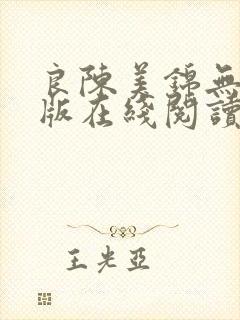 良陳美錦無
版在綫閱讀
王光亞